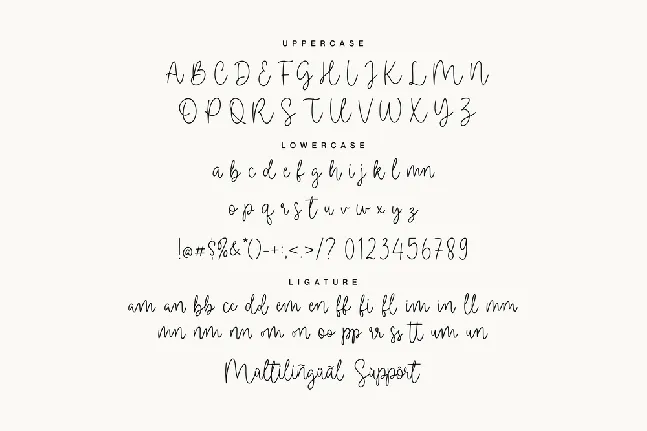 UPPERCASE
A B C D E F G H I J K L M N
O P Q R S T U V W X Y Z
LOWERCASE
a b c d e f g h i j k l m n
o p q r s t u v w x y z
!@#$%&*()-+:,<.>/? 0123456789
LIGATURE
am an bb cc dd em en ff fi fl im in ll mm
mn nm nn om on oo pp rr ss tt um un
Maltilingüãl Sùppórt